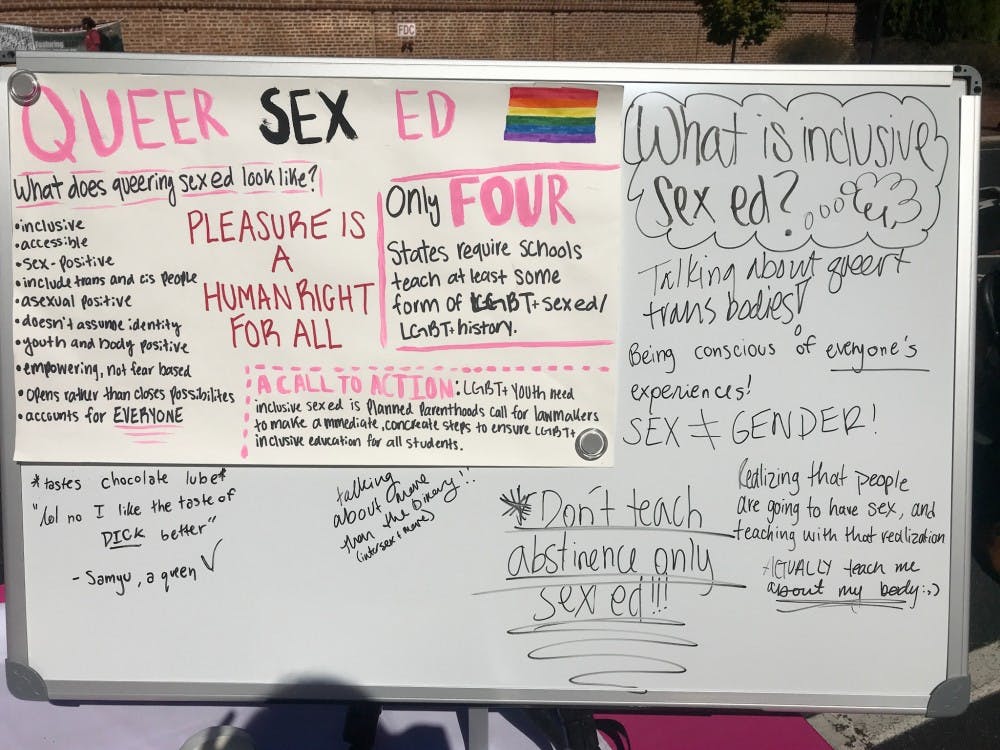 FDC
QUEER SEX ED
What does queering sex ed look like?
•inclusive
•accessible
•sex-positive
•include trans and cis people
•asexual positive
•doesn't assume identity
•youth and body positive
•empowering, not fear based
•opens rather than closes possibilites
•accounts for EVERYONE
PLEASURE IS
A
HUMAN RIGHT
FOR ALL
Only FOUR
States require schools
teach at least some
form of LGBT+ sex ed/
LGBT+ history.
A CALL TO ACTION: LGBT+ Youth need
inclusive sex ed is Planned Parenthoods call for lawmakers
to make a immediate, concreate steps to ensure LGBT+
inclusive education for all students.
What is inclusive
sex ed?
Talking about queer +
trans bodies!
Being conscious of everyone's
experiences!
SEX ≠ GENDER!
*tastes chocolate lube*
"lol no I like the taste of
DICK better"
- Samyu, a queen
talking
about more
than the binary!!
(intersex + more)
* Don't teach
abstinence only
sex ed!!!
Realizing that people
are going to have sex, and
teaching with that realization
ACTUALLY teach me
about my body :;)